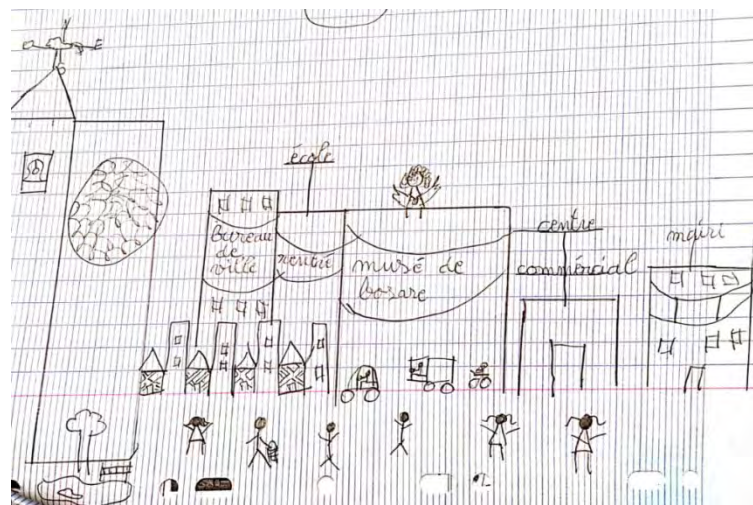 école
bureau
de
ville
neutre
musé de
bosare
centre
commércial
mairi